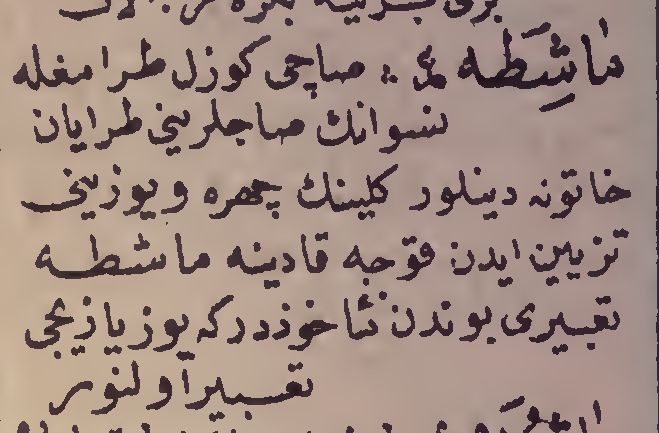 ماشِطَه ع :: صاچى كوزل طرامغله
نسوانك صاچلرينى طرايان
خاتونه دينلور كلينك چهره ويوزينى
تزيين ايدن قوجه قادينه ماشطه
تعبيرى بوندن مأخوذدركه يوز يازيجى
تعبير اولنور